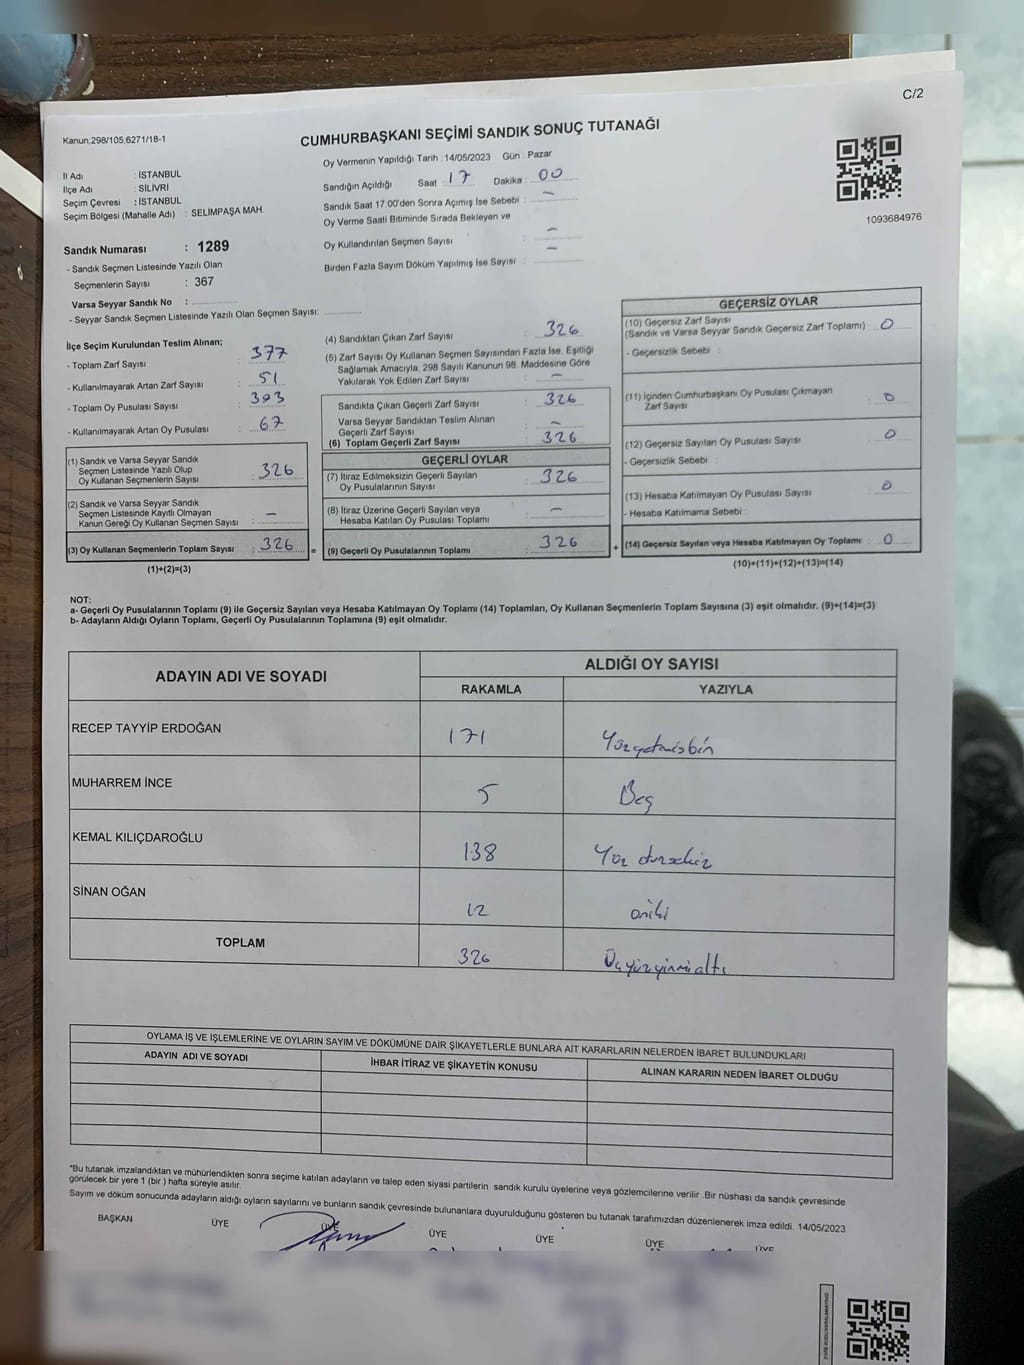 C/2
Kanun:298/105,6271/18-1
CUMHURBAŞKANI SEÇİMİ SANDIK SONUÇ TUTANAĞI
İl Adı : İSTANBUL
İlçe Adı : SİLİVRİ
Seçim Çevresi : İSTANBUL
Seçim Bölgesi (Mahalle Adı) : SELİMPAŞA MAH.
Oy Vermenin Yapıldığı Tarih : 14/05/2023 Gün : Pazar
Sandığın Açıldığı Saat 17 Dakika : 00
Sandık Saat 17:00'den Sonra Açımış İse Sebebi : -
Oy Verme Saati Bitiminde Sırada Bekleyen ve
Oy Kullandırılan Seçmen Sayısı : -
Birden Fazla Sayım Döküm Yapılmış İse Sayısı : -
1093684976
Sandık Numarası : 1289
- Sandık Seçmen Listesinde Yazılı Olan
Seçmenlerin Sayısı : 367
Varsa Seyyar Sandık No :
- Seyyar Sandık Seçmen Listesinde Yazılı Olan Seçmen Sayısı:
İlçe Seçim Kurulundan Teslim Alınan;
- Toplam Zarf Sayısı : 377
- Kullanılmayarak Artan Zarf Sayısı : 51
- Toplam Oy Pusulası Sayısı : 393
- Kullanılmayarak Artan Oy Pusulası : 67
(1) Sandık ve Varsa Seyyar Sandık
Seçmen Listesinde Yazılı Olup
Oy Kullanan Seçmenlerin Sayısı : 326
(2) Sandık ve Varsa Seyyar Sandık
Seçmen Listesinde Kayıtlı Olmayan
Kanun Gereği Oy Kullanan Seçmen Sayısı : -
(3) Oy Kullanan Seçmenlerin Toplam Sayısı : 326 =
(1)+(2)=(3)
(4) Sandıktan Çıkan Zarf Sayısı : 326
(5) Zarf Sayısı Oy Kullanan Seçmen Sayısından Fazla İse, Eşitliği
Sağlamak Amacıyla; 298 Sayılı Kanunun 98. Maddesine Göre
Yakılarak Yok Edilen Zarf Sayısı : -
Sandıkta Çıkan Geçerli Zarf Sayısı : 326
Varsa Seyyar Sandıktan Teslim Alınan
Geçerli Zarf Sayısı : -
(6) Toplam Geçerli Zarf Sayısı : 326
GEÇERLİ OYLAR
(7) İtiraz Edilmeksizin Geçerli Sayılan
Oy Pusulalarının Sayısı : 326
(8) İtiraz Üzerine Geçerli Sayılan veya
Hesaba Katılan Oy Pusulası Toplamı : -
(9) Geçerli Oy Pusulalarının Toplamı : 326 +
GEÇERSİZ OYLAR
(10) Geçersiz Zarf Sayısı
(Sandık ve Varsa Seyyar Sandık Geçersiz Zarf Toplamı) : 0
- Geçersizlik Sebebi :
(11) İçinden Cumhurbaşkanı Oy Pusulası Çıkmayan
Zarf Sayısı : 0
(12) Geçersiz Sayılan Oy Pusulası Sayısı : 0
- Geçersizlik Sebebi :
(13) Hesaba Katılmayan Oy Pusulası Sayısı : 0
- Hesaba Katılmama Sebebi :
(14) Geçersiz Sayılan veya Hesaba Katılmayan Oy Toplamı : 0
(10)+(11)+(12)+(13)=(14)
NOT:
a- Geçerli Oy Pusulalarının Toplamı (9) ile Geçersiz Sayılan veya Hesaba Katılmayan Oy Toplamı (14) Toplamları, Oy Kullanan Seçmenlerin Toplam Sayısına (3) eşit olmalıdır. (9)+(14)=(3)
b- Adayların Aldığı Oyların Toplamı, Geçerli Oy Pusulalarının Toplamına (9) eşit olmalıdır.
ADAYIN ADI VE SOYADI ALDIĞI OY SAYISI
RAKAMLA YAZIYLA
RECEP TAYYİP ERDOĞAN 171 Yüzyetmişbir
MUHARREM İNCE 5 Beş
KEMAL KILIÇDAROĞLU 138 Yüz
SİNAN OĞAN 12 oniki
TOPLAM 326 Üçyüzyirmialtı
OYLAMA İŞ VE İŞLEMLERİNE VE OYLARIN SAYIM VE DÖKÜMÜNE DAİR ŞİKAYETLERLE BUNLARA AİT KARARLARIN NELERDEN İBARET BULUNDUKLARI
ADAYIN ADI VE SOYADI İHBAR İTİRAZ VE ŞİKAYETİN KONUSU ALINAN KARARIN NEDEN İBARET OLDUĞU
*Bu tutanak imzalandıktan ve mühürlendikten sonra seçime katılan adayların ve talep eden siyasi partilerin sandık kurulu üyelerine veya gözlemcilerine verilir .Bir nüshası da sandık çevresinde
görülecek bir yere 1 (bir ) hafta süreyle asılır.
Sayım ve döküm sonucunda adayların aldığı oyların sayılarını ve bunların sandık çevresinde bulunanlara duyurulduğunu gösteren bu tutanak tarafımızdan düzenlenerek imza edildi. 14/05/2023
BAŞKAN ÜYE ÜYE ÜYE ÜYE ÜYE ÜYE